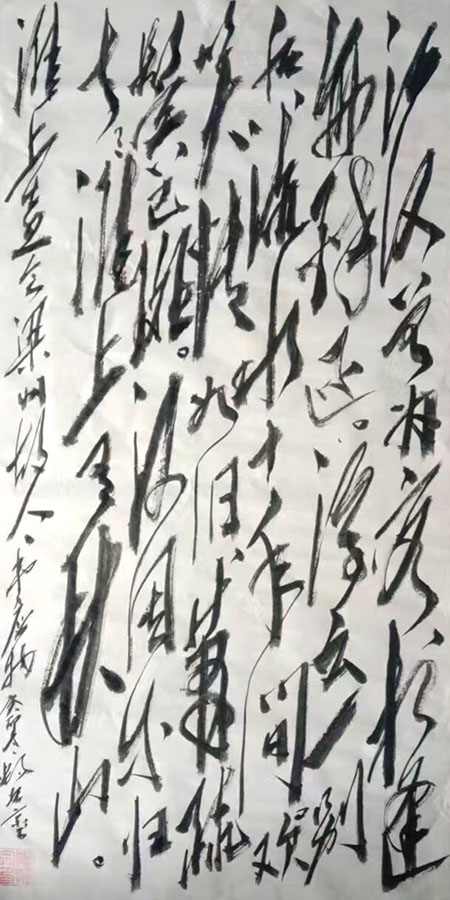 江汉曾为客相逢
每醉还浮云一别
后流水十年间欢
笑情如旧萧疏
鬓已斑何因不归
去淮上有秋山
淮上喜会梁州故人韦应物癸卯